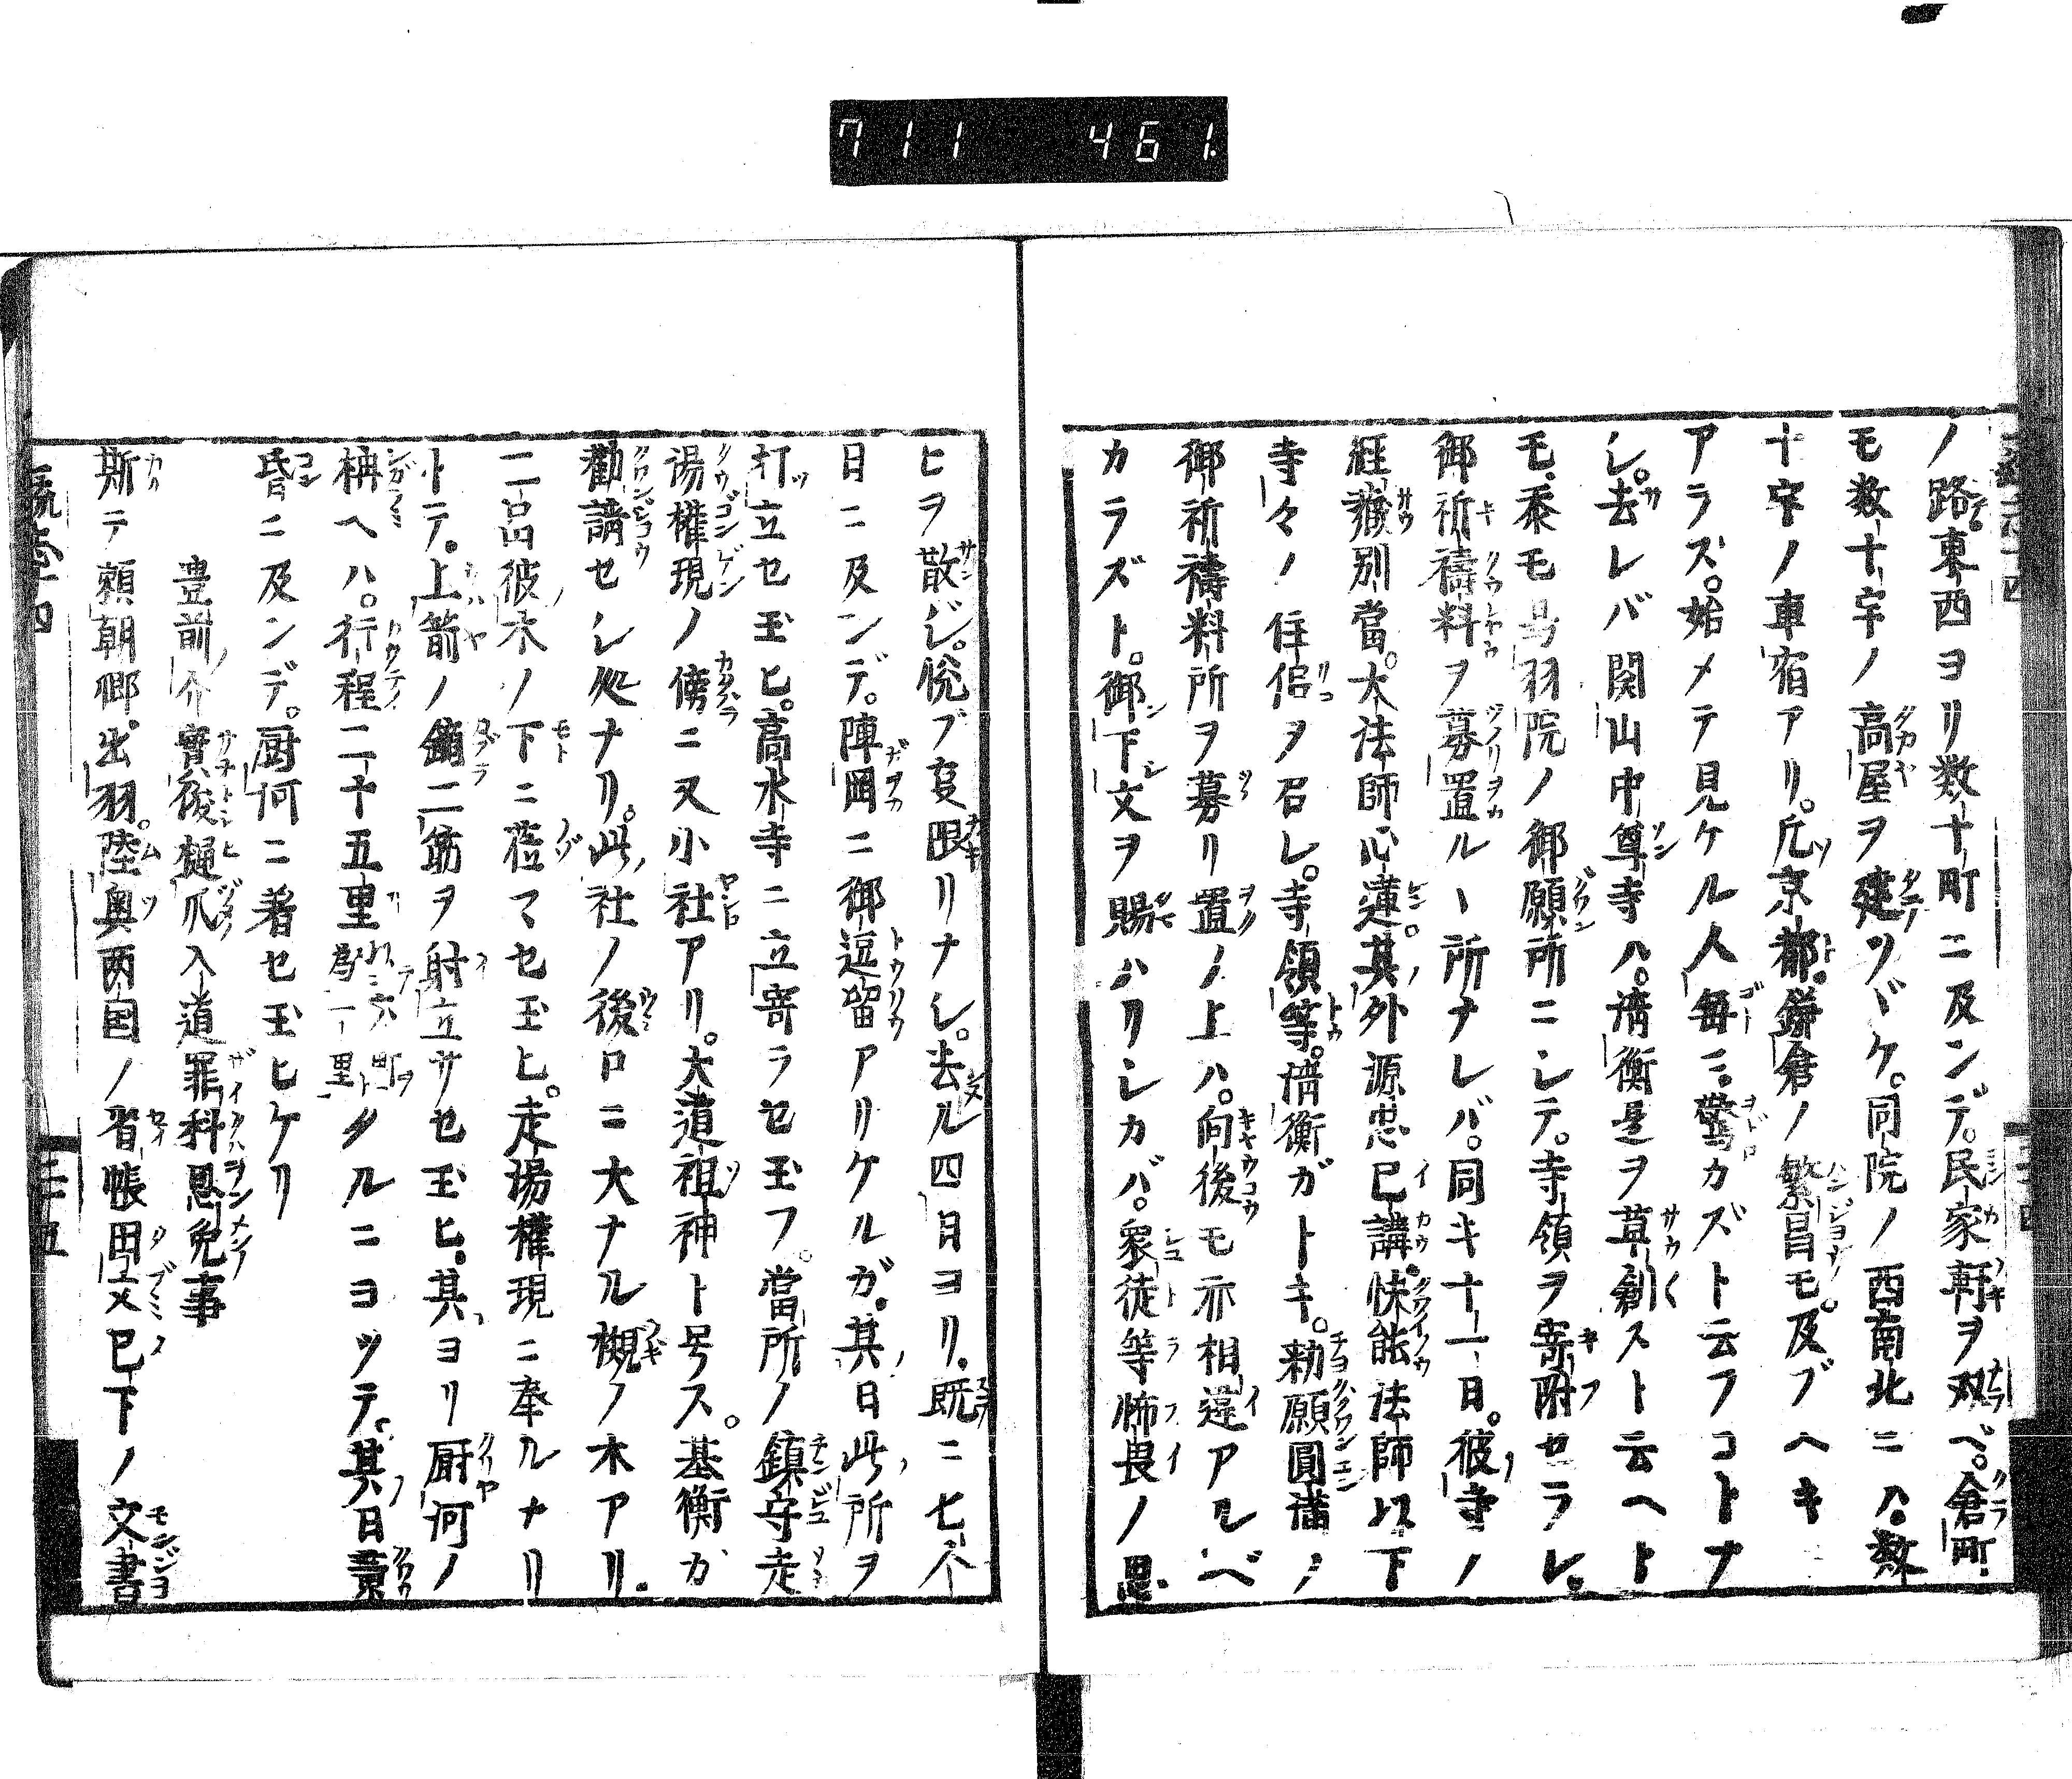 711 461.
ノ路。東西ヨリ数十町ニ及ンデ。民家軒ヲ双ベ。倉町
モ数十宇ノ高屋ヲ建ツヾケ。同院ノ西南北ニハ。数
十宇ノ車宿アリ。凡京都。鎌倉ノ繁昌モ。及ブヘキ
アラズ。始メテ見ケル人毎ニ。驚カズト云フコトナ
シ。去レバ関山中尊寺ハ。清衡是ヲ草創スト云ヘト
モ。忝モ鳥羽院ノ御願所ニシテ。寺領ヲ寄附セラレ。
御祈禱料ヲ募置ルヽ所ナレバ。同キ十一日。彼寺ノ
経蔵別當。大法師心蓮。其外源忠已講。快能法師以下
寺々ノ住侶ヲ召レ。寺領等。清衡ガトキ。勅願圓満ノ
御祈禱料所ヲ募リ置ノ上ハ。向後モ亦相違アルベ
カラズト。御下文ヲ賜ハリシカバ。衆徒等怖畏ノ思
ヒヲ散ジ。悦ブ㕝限リナシ。去ル四日ヨリ。既ニ七个
日ニ及ンデ。陣岡ニ御逗留アリケルガ。其日此所ヲ
打立セ玉ヒ。高水寺ニ立寄ラセ玉フ。當所ノ鎮守走
湯權現ノ傍ニ又小社アリ。大道祖神ト号ス。基衡カ
勸請セシ処ナリ。此社ノ後ロニ大ナル槻ノ木アリ。
二品彼木ノ下ニ莅マセ玉ヒ。走湯權現ニ奉ルナリ
トテ。上箭ノ鏑二筋ヲ射立サセ玉ヒ。其ヨリ厨河ノ
柵ヘハ。行程二十五里以六町ヲ為一里トタルニヨツテ。其日黄
昏ニ及ンデ。厨河ニ着セ玉ヒケリ
豊前介實俊樋爪入道罪科恩免事
斯テ頼朝卿。出羽。陸奥両国ノ省帳田文已下ノ文書